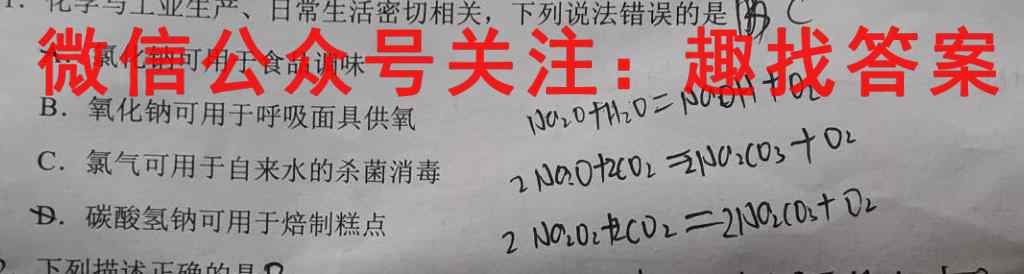 1. 化学与工业生产、日常生活密切相关，下列说法错误的是 C
微信公众号关注：趣找答案
A. 氯化钠可用于食品调味
B. 氧化钠可用于呼吸面具供氧
Na₂O+H₂O=NaOH+O₂
C. 氯气可用于自来水的杀菌消毒
2Na₂O+2CO₂=2Na₂CO₃+O₂
D. 碳酸氢钠可用于焙制糕点
2Na₂O₂+2CO₂=2Na₂CO₃+O₂
2. 下列描述正确的是D